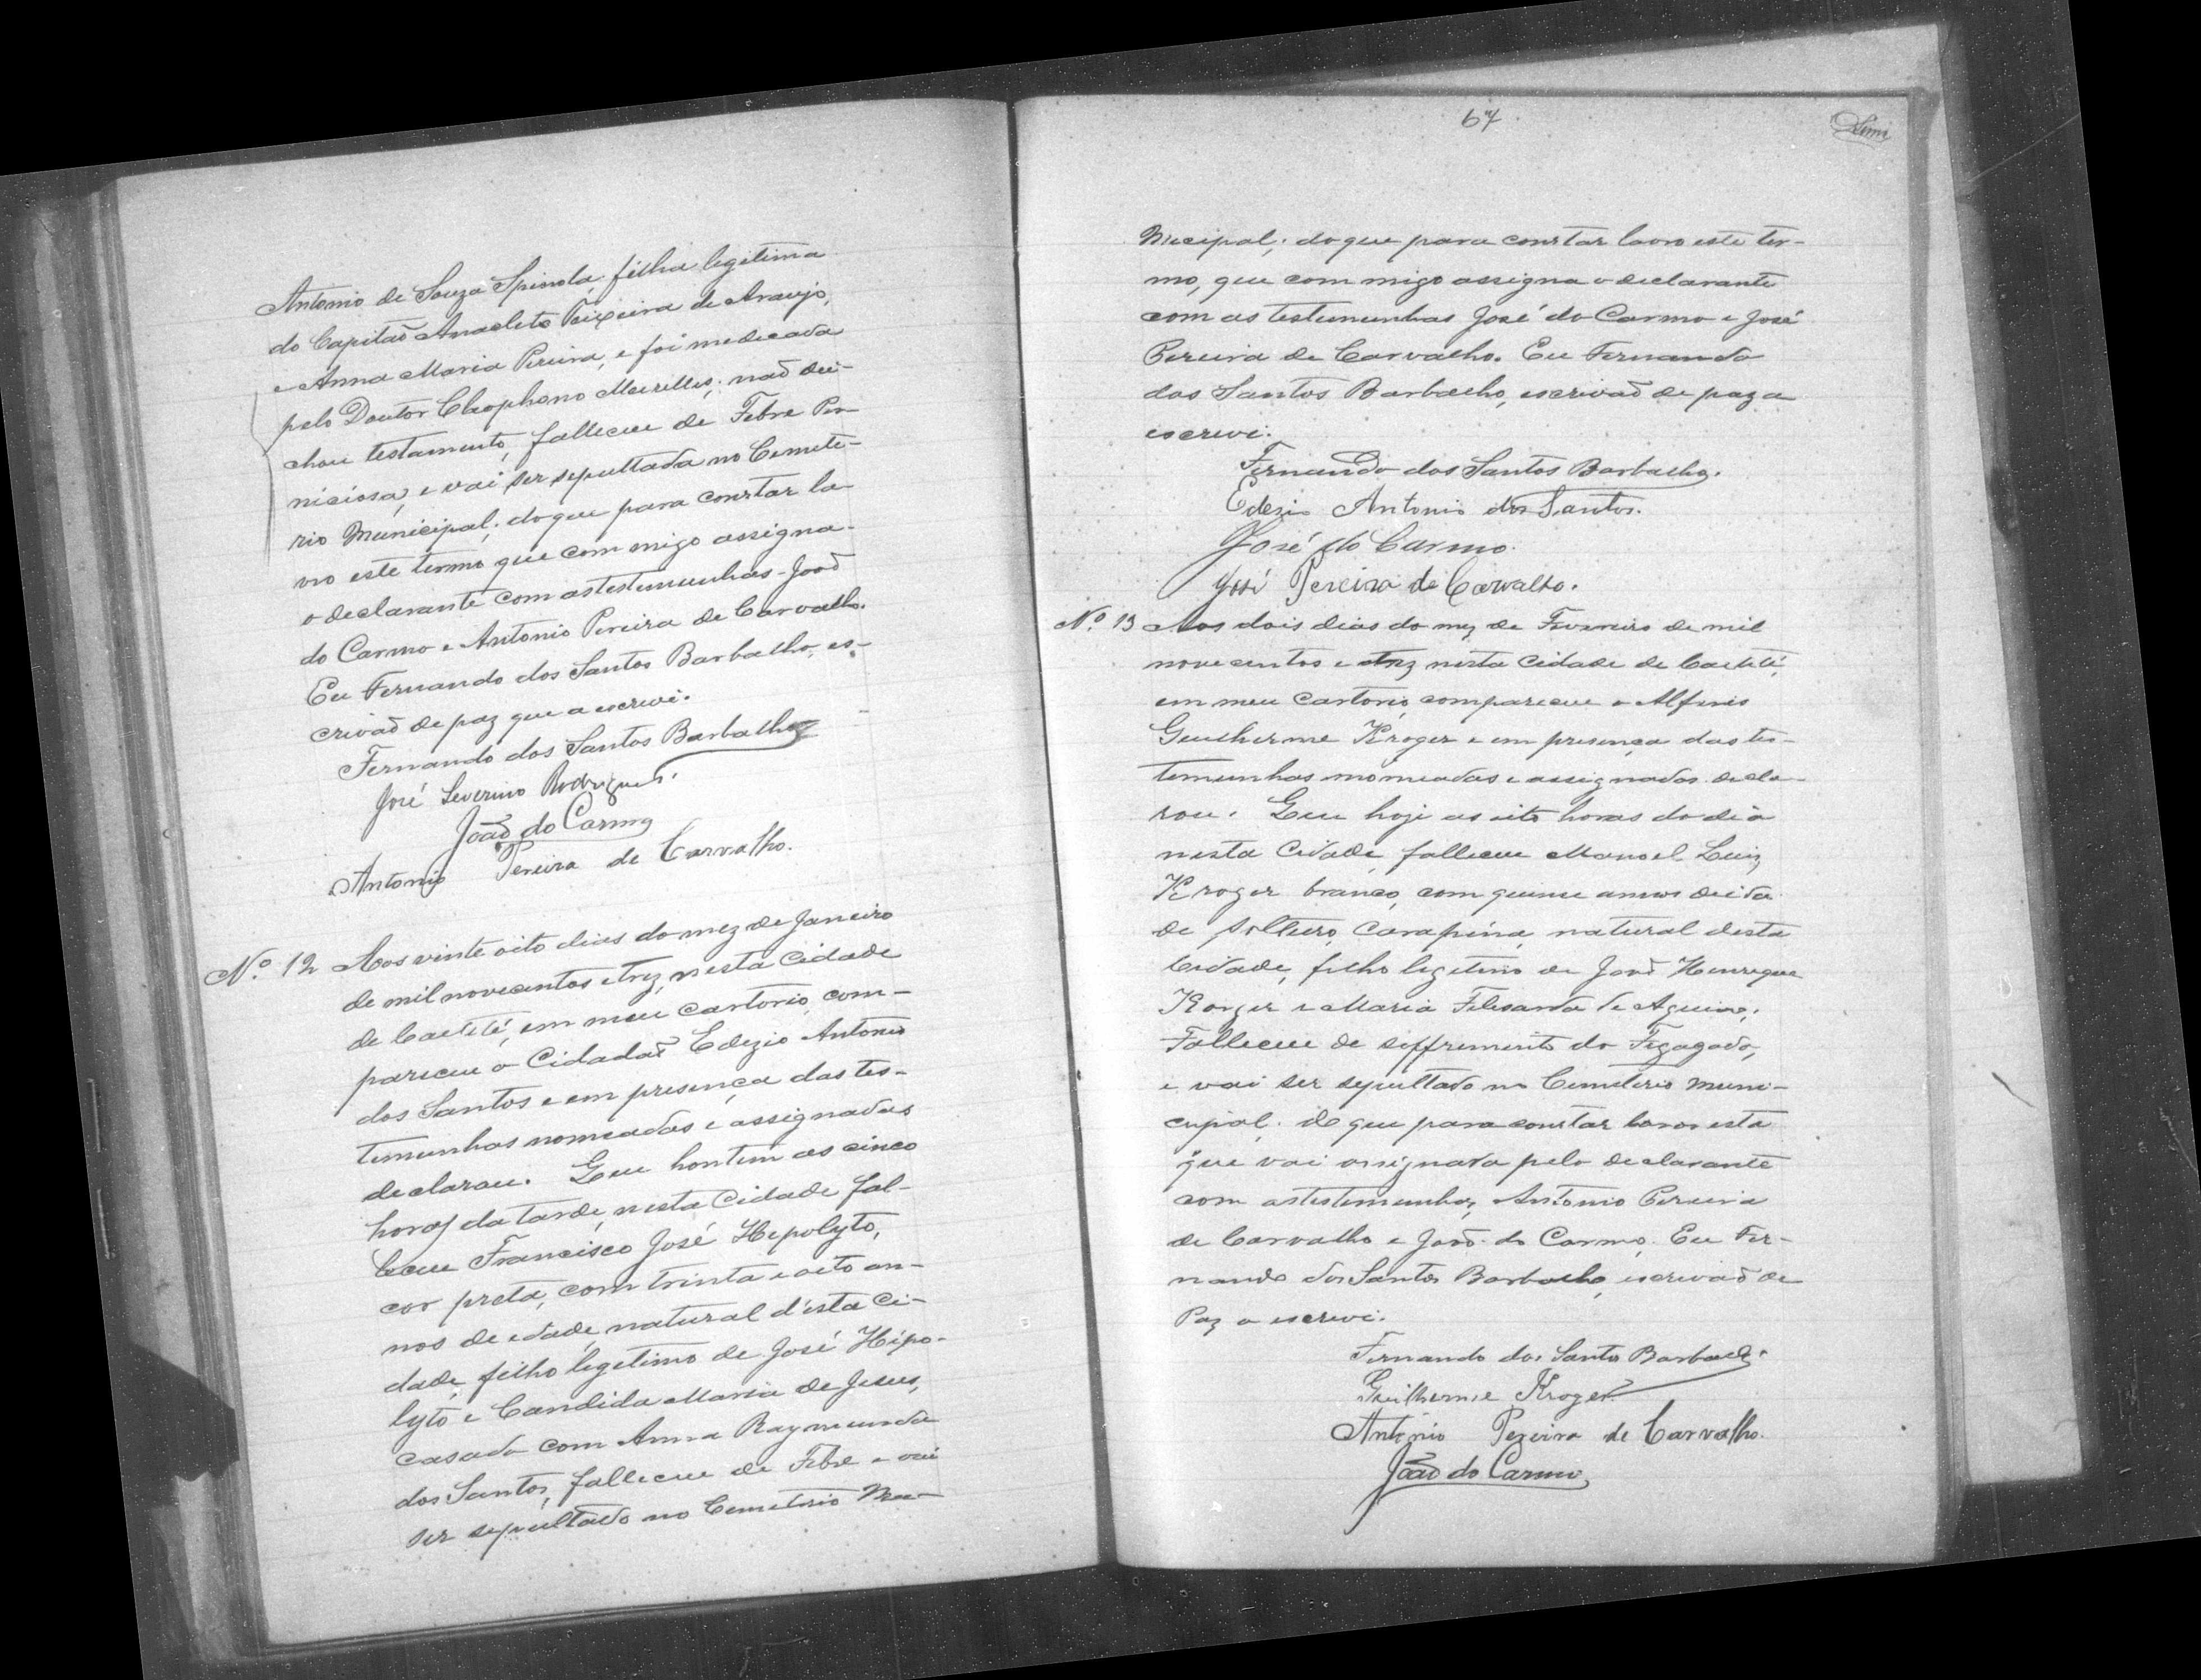 Antonio de Souza Spinola, filha legitima
do Capitaõ Anacleto Teixeira de Araujo,
e Anna Maria Pereira, e foi medecada
pelo Doutor Cleophano Meirelles; naõ dei-
chou testamento, falleceu de Febre Per-
niciosa, e vai ser sepultada no Cemete-
rio Municipal; do que para constar la-
vro este termo que com migo assigna-
o declarante com as testemunhas João
do Carmo e Antonio Pereira de Carvalho.
Eu Fernando dos Santos Barbalho, es-
crivaõ de paz que a escrevi.
Fernando dos Santos Barbalho
José Severino Rodrigues.
João do Carmo
Antonio Pereira de Carvalho.
Nº 12 Aos vinte oito dias do mez de Janeiro
de mil novecentos e trez, nesta Cidade
de Caeteté, em meu cartorio, com-
pareceu o Cidadaõ Edezio Antonio
dos Santos e em presença das tes-
temunhas nomeadas e assignadas
declarou. Que hontem as cinco
horas da tarde, nesta Cidade fal-
leceu Francisco José Hepolyto,
cor preta, com trinta e oito an-
nos de edade, natural d'esta Ci-
dade, filho legitimo de José Hipo-
lyto e Candida Maria de Jesus,
casado com Anna Raymunda
dos Santos, falleceu de Febre e vai
ser sepultado no Cemeterio Mu-
67
nicipal; do que para constar lavro este ter-
mo, que com migo assigna o declarante
com as testemunhas José do Carmo e José
Pereira de Carvalho. Eu Fernando
dos Santos Barbalho, escrivaõ de paz a
escrevi.
Fernando dos Santos Barbalho.
Edezio Antonio dos Santos.
José do Carmo.
José Pereira de Carvalho.
Nº 13 Aos dois dias do mez de Fevereiro de mil
novecentos e trez nesta Cidade de Caeteté,
em meu Cartorio, compareceu o Alferes
Guilherme Kroger e em presença das tes-
temunhas nomeadas e assignadas decla-
rou. Que hoje as oito horas do dia
nesta Cidade, falleceu Manoel Luiz
Kroger branco, com quinse annos de ida
de solteiro, Carapina, natural desta
Cidade, filho legitimo de João Henrique
Kroger e Maria Felisarda de Aguiar.
Falleceu de soffrimento do Fegagado,
e vai ser sepultado no Cemeterio Muni-
cipal. do que para constar lavro esta
que vai assignada pelo declarante
com as testemunhas, Antonio Pereira
de Carvalho e João do Carmo. Eu Fer-
nando dos Santos Barbalho, escrivaõ de
Paz a escrevi.
Fernando dos Santos Barbalho.
Guilherme Kroger
Antonio Pereira de Carvalho.
João do Carmo